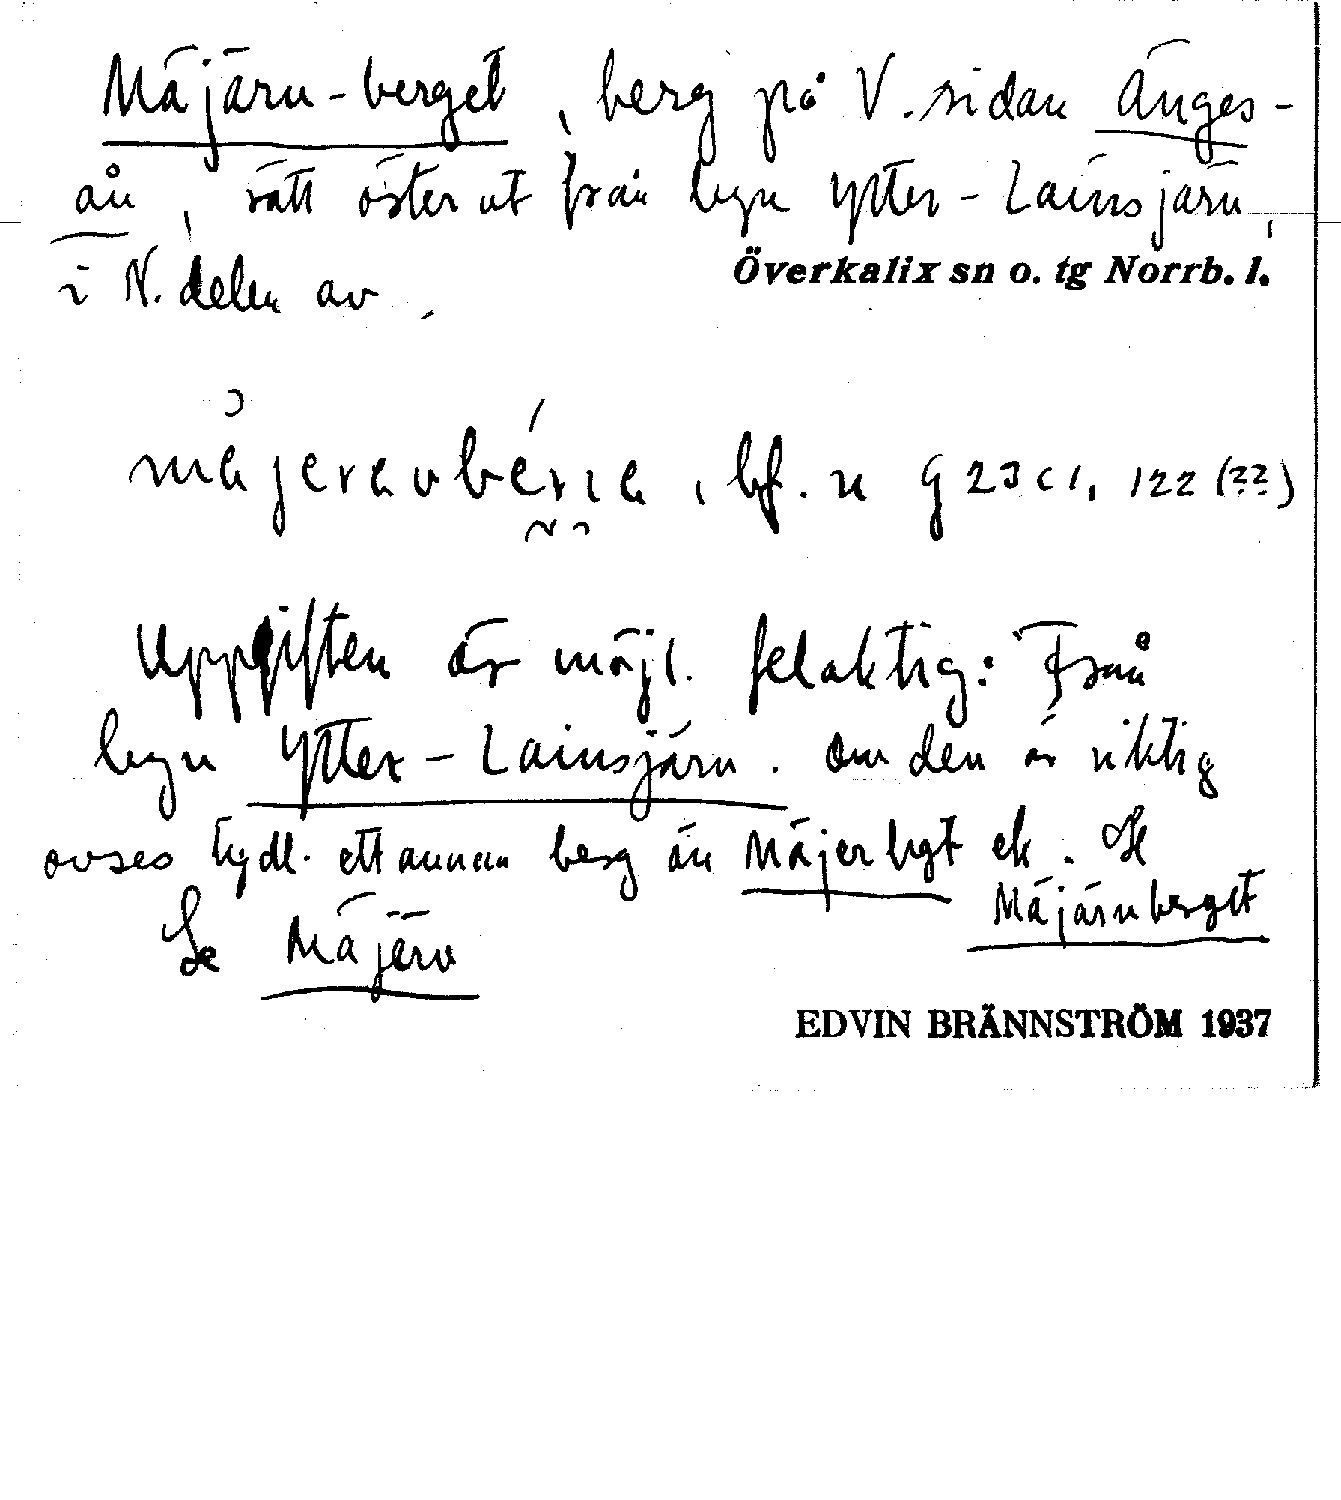 Mäjärv-berget, berg på V. sidan Änges-
ån, rätt österut från byn Ytter-Lainsjärv,
i N. delen av Överkalix sn o. tg Norrb. l.
bf. n G 23 c 1, 122 (??)
Uppgiften är möjl. felaktig: Från
byn Ytter-Lainsjärv. Om den är riktig
avses tydl. ett annan berg än Mäjerbgt ek. Se
Mäjärvberget
Se Mäjärv
EDVIN BRÄNNSTRÖM 1937